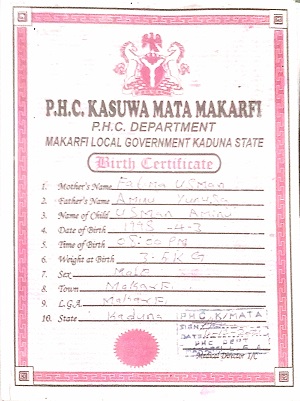 P.H.C. KASUWA MATA MAKARFI
P.H.C. DEPARTMENT
MAKARFI LOCAL GOVERNMENT KADUNA STATE
Birth Certificate
1. Mother's Name Fatima Usman
2. Father's Name Aminu
3. Name of Child Usman Aminu
4. Date of Birth 1998 -4-3
5. Time of Birth 05:00 PM
6. Weight at Birth 3.5KG
7. Sex Male
8. Town Makarfi
9. L.G.A. Makarfi
10. State Kaduna
PHC K/MATA
SIGN
DATE
PHC DEPT
Medical Director I/C